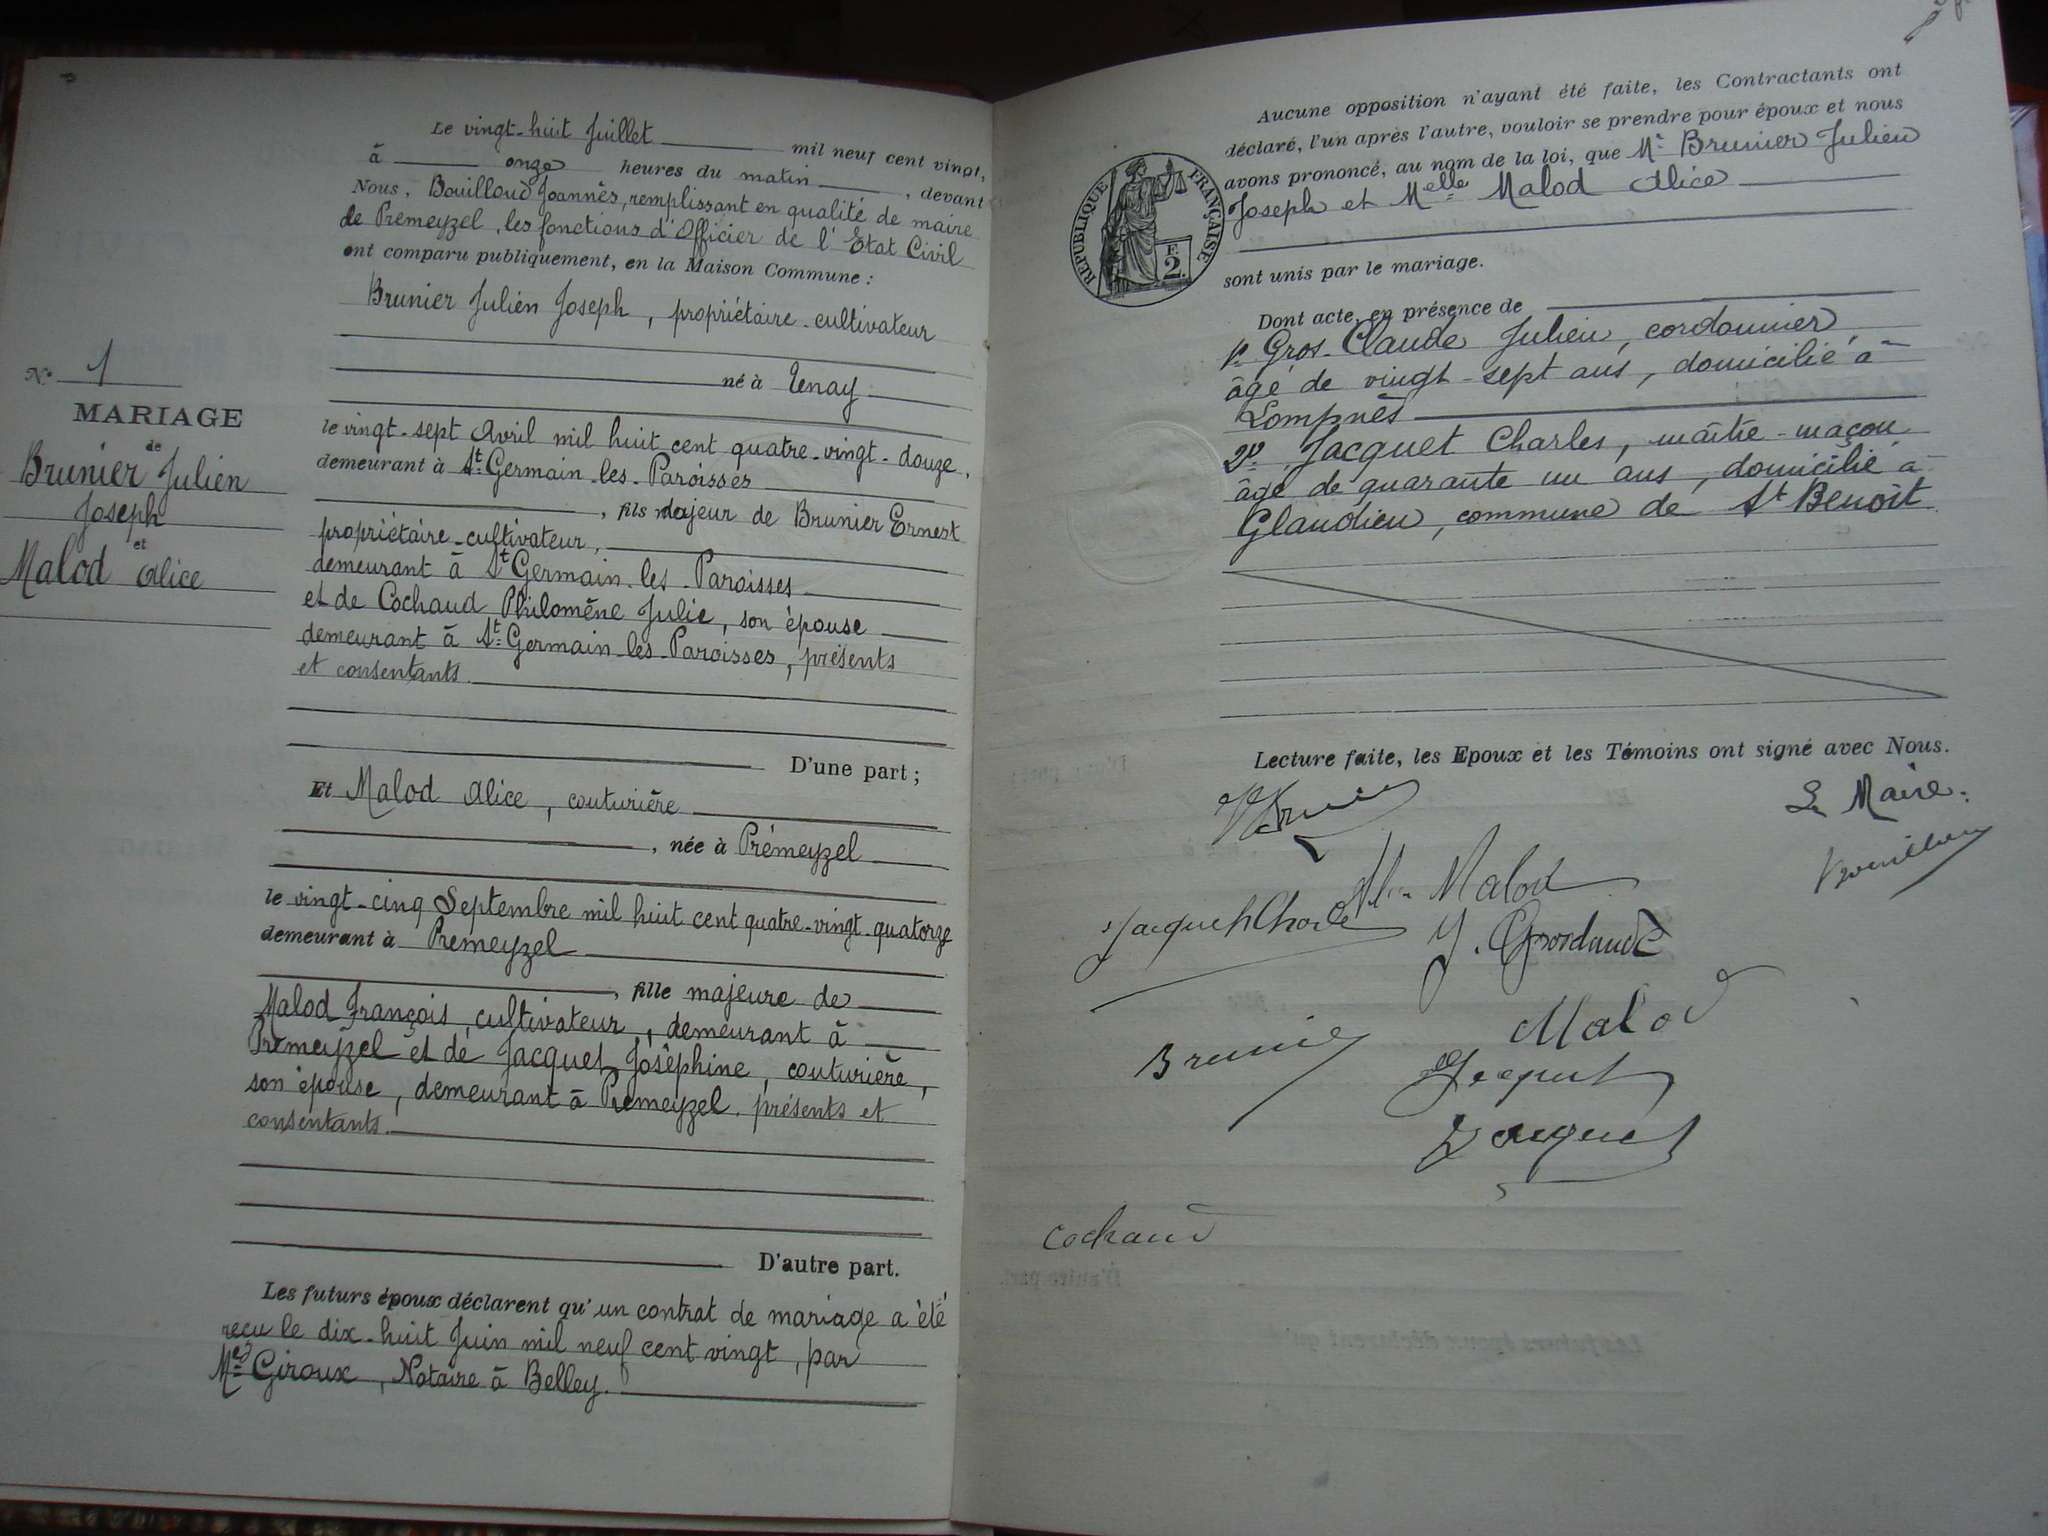 Le vingt-huit Juillet mil neuf cent vingt,
à onze heures du matin, devant
Nous, Bouilloud Joannès, remplissant en qualité de maire
de Prémeyzel, les fonctions d'Officier de l'Etat Civil
ont comparu publiquement, en la Maison Commune :
Brunier Julien Joseph, propriétaire-cultivateur
né à Tenay
le vingt-sept Avril mil huit cent quatre-vingt-douze,
demeurant à St Germain-les-Paroisses
, fils majeur de Brunier Ernest
propriétaire-cultivateur,
demeurant à St Germain-les-Paroisses
et de Cochaud Philomène Julie, son épouse
demeurant à St Germain-les-Paroisses, présents
et consentants.
D'une part ;
Et Malod Alice, couturière
, née à Prémeyzel
le vingt-cinq Septembre mil huit cent quatre-vingt-quatorze
demeurant à Premeyzel
, fille majeure de
Malod François, cultivateur, demeurant à
Prémeyzel et de Jacquet Joséphine, couturière,
son épouse, demeurant à Premeyzel, présents et
consentants.
D'autre part.
Les futurs époux déclarent qu'un contrat de mariage a été
reçu le dix-huit Juin mil neuf cent vingt, par
Me Giroux, Notaire à Belley.
N° 1
MARIAGE
de
Brunier Julien
Joseph
et
Malod Alice
Aucune opposition n'ayant été faite, les Contractants ont
déclaré, l'un après l'autre, vouloir se prendre pour époux et nous
avons prononcé, au nom de la loi, que Mr Brunier Julien
Joseph et Melle Malod Alice
sont unis par le mariage.
REPUBLIQUE FRANÇAISE
F.
2
Dont acte, en présence de
1° Gros-Claude Julien, cordonnier
âgé de vingt-sept ans, domicilié à
Lompnès
2° Jacquet Charles, maître-maçon
âgé de quarante un ans, domicilié à
Glandieu, commune de St Benoît
Lecture faite, les Epoux et les Témoins ont signé avec Nous.
Le Maire.
Malod
Malod
Jacquet
Jacquet
Cochaud